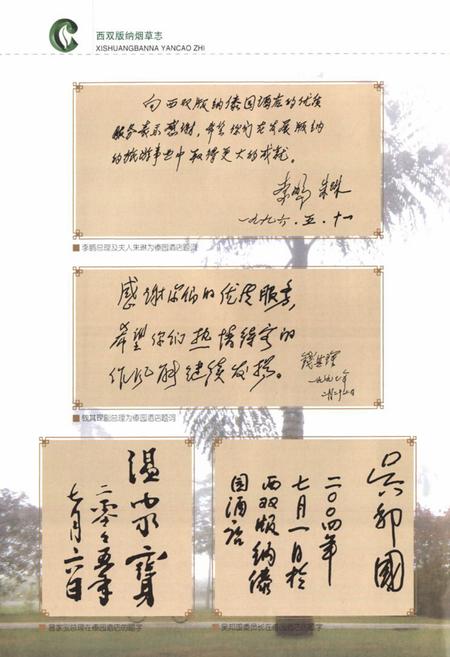 西双版纳烟草志
XISHUANGBANNA YANCAO ZHI
向西双版纳傣园酒店的优质
服务表示感谢，希望你们在发展版纳
的旅游事业中取得更大的成就。
李鹏 朱琳
一九九六·五·十一
李鹏总理及夫人朱琳为傣园酒店题词
感谢你们的优质服务，
希望你们热情待客的
作风能继续发扬。
钱其琛
一九九七年
钱其琛副总理为傣园酒店题词
温家宝
二零零五年
七月六日
温家宝总理在傣园酒店的题字
吴邦国
二〇〇四年
七月一日於
西双版纳傣
园酒店
吴邦国委员长在傣园酒店的题字